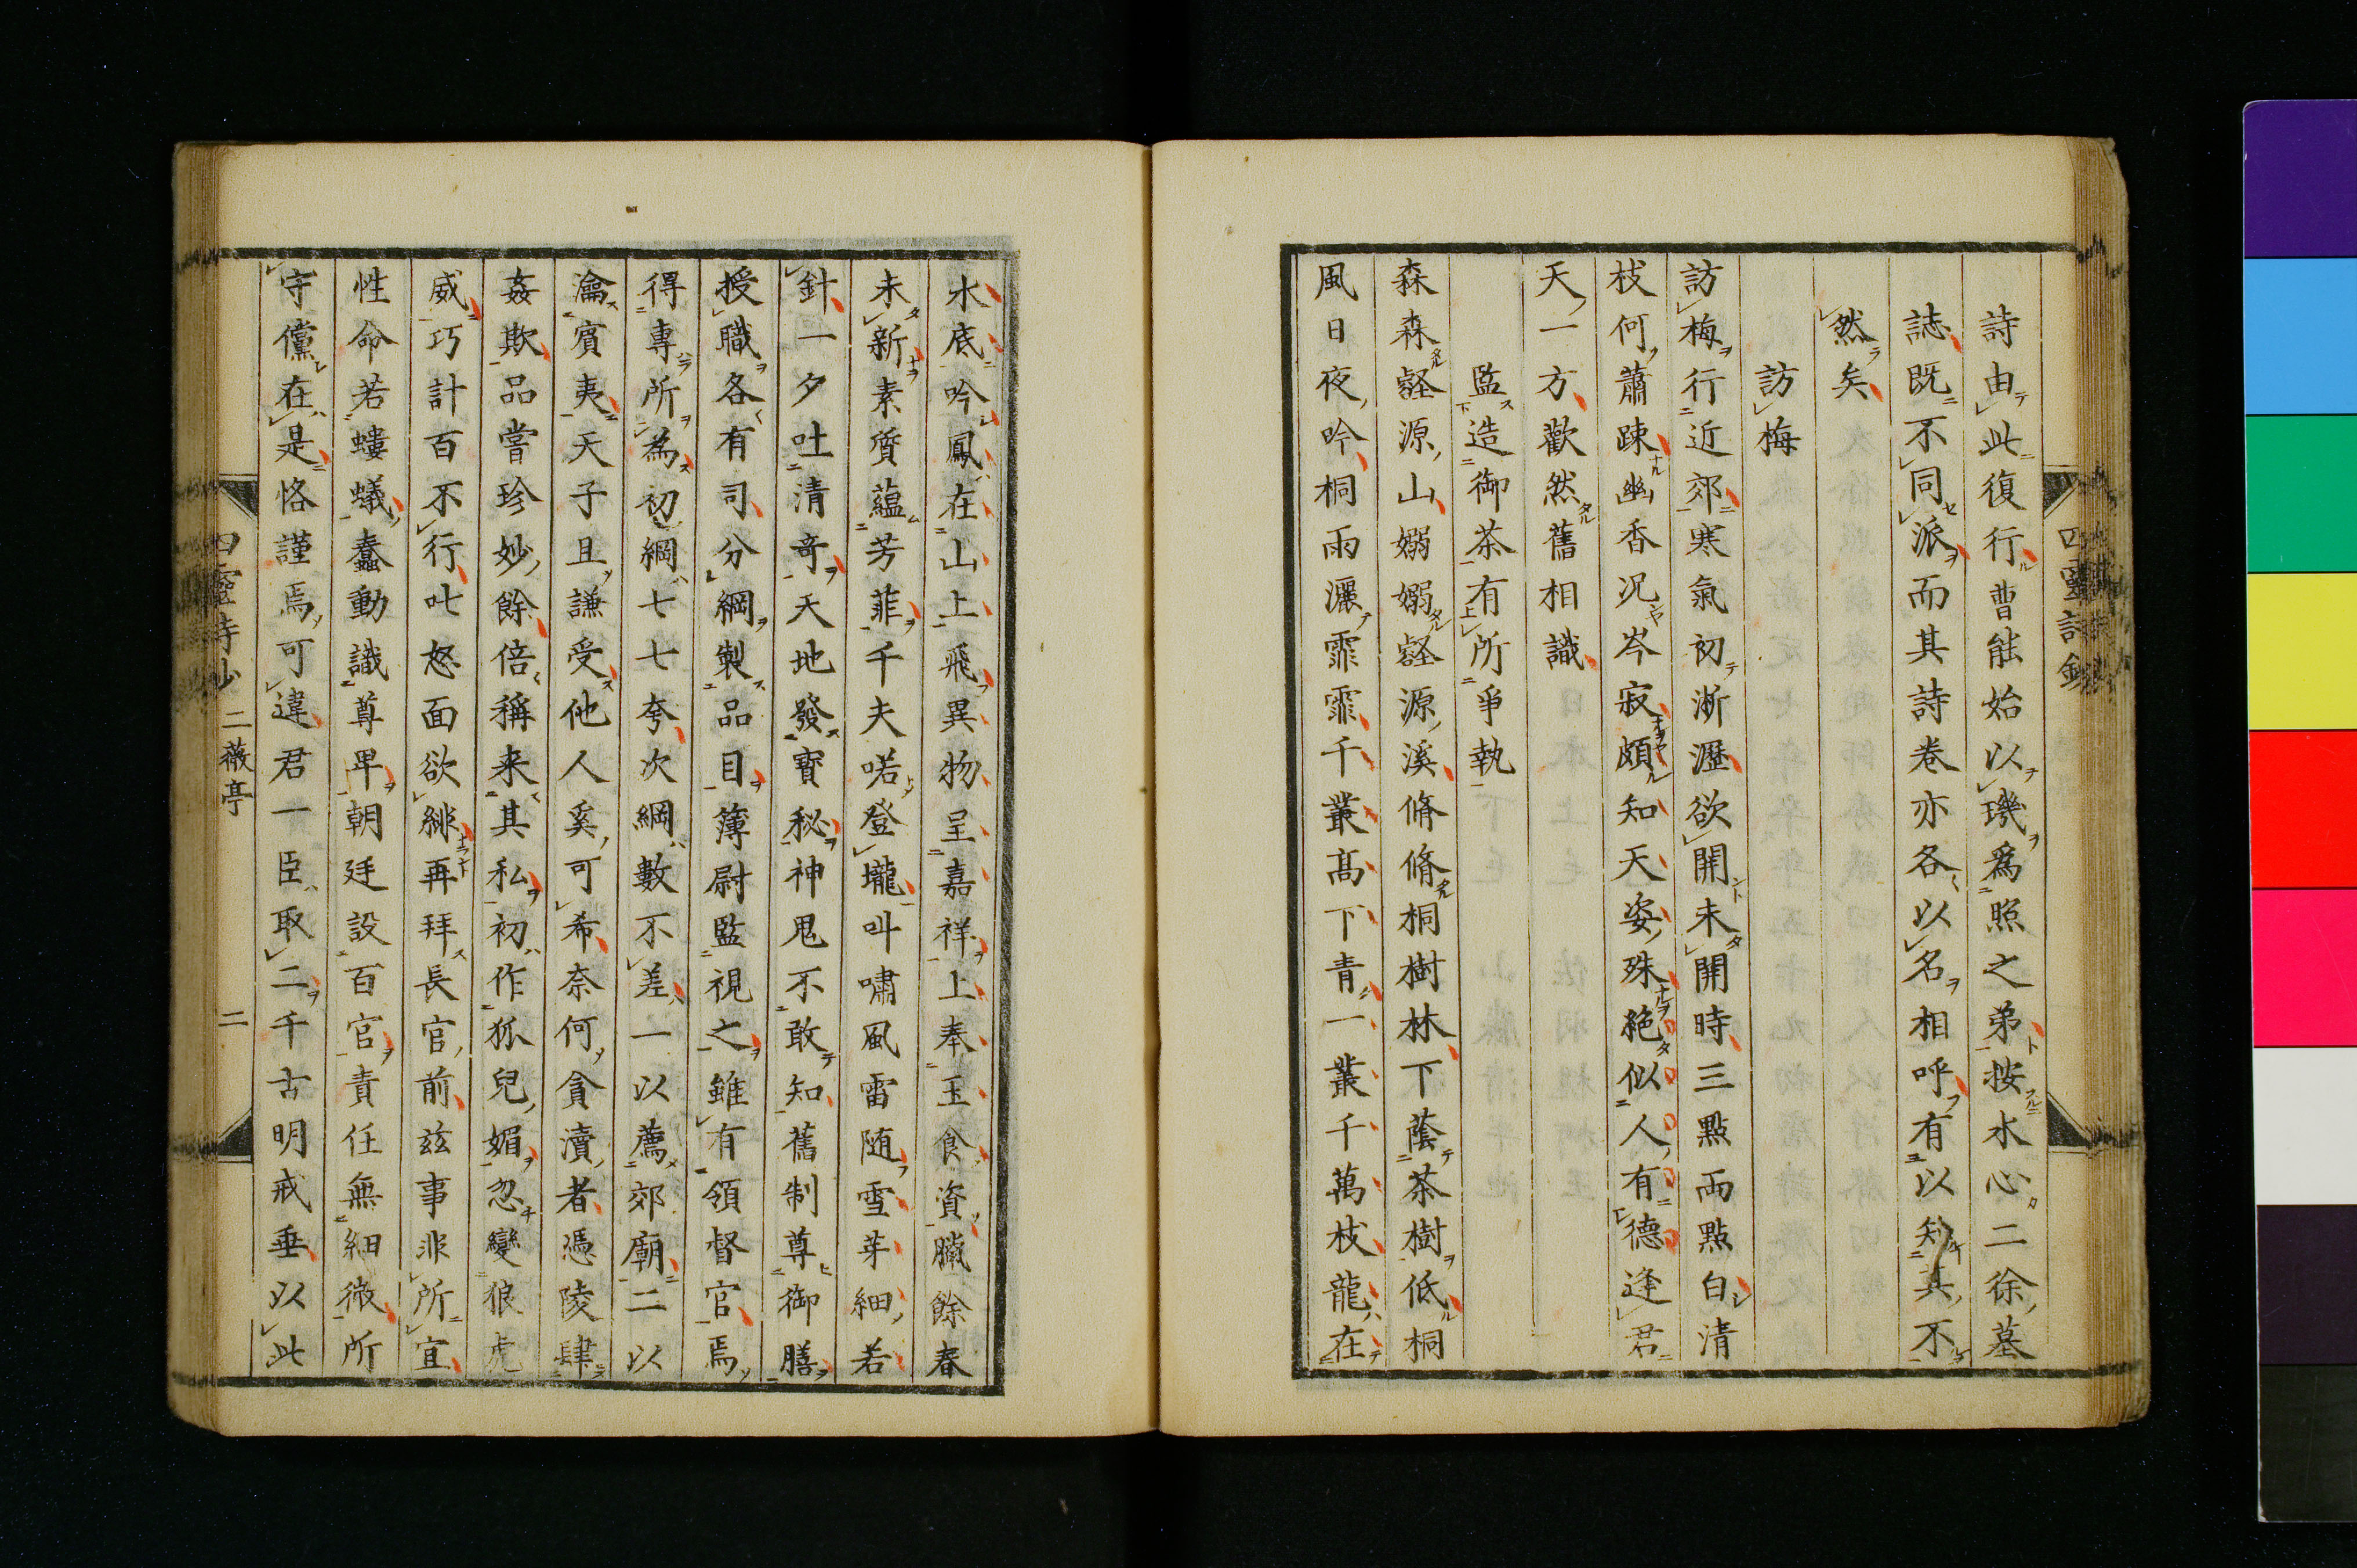 詩由此復行曹能始以璣爲照之弟按水心二徐墓
誌既不同派而其詩卷亦各以名相呼有以知其不
然矣
訪梅
訪梅行近郊寒氣初淅瀝欲開未開時三點兩點白清
枝何蕭踈幽香况岑寂頗知天姿殊絶似人有德逢君
天一方歡然舊相識
監造御茶有所爭執
森森壑源山嫋嫋壑源溪脩脩桐樹林下蔭茶樹低桐
風日夜吟桐雨灑霏霏千叢高下青一叢千萬枝龍在
水底吟鳳在山上飛異物呈嘉祥上奉玉食資臘餘春
未新素質蘊芳菲千夫喏登壠叫嘯風雷随雪芽細若
針一夕吐清奇天地發寳秘神鬼不敢知舊制尊御膳
授職各有司分綱製品目簿尉監視之雖有領督官焉
得專所為初綱七七夸次綱數不差一以薦郊廟二以
瀹賓夷天子且謙受他人奚可希奈何貪瀆者憑陵肆
姦欺品嘗珍妙餘倍稱来其私初作狐兒媚忽變狼虎
威巧計百不行叱怒面欲緋再拜長官前兹事非所宜
性命若螻蟻蠢動識尊卑朝廷設百官責任無細微所
守儻在是恪謹焉可違君一臣取二千古明戒垂以此
四靈詩鈔
四靈詩鈔 二薇亭 二